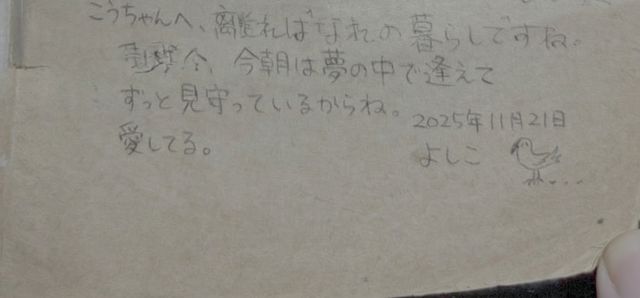 こうちゃんへ、離ればなれの暮らしですね。
今、今朝は夢の中で逢えて
ずっと見守っているからね。
愛してる。
2025年11月21日
よしこ